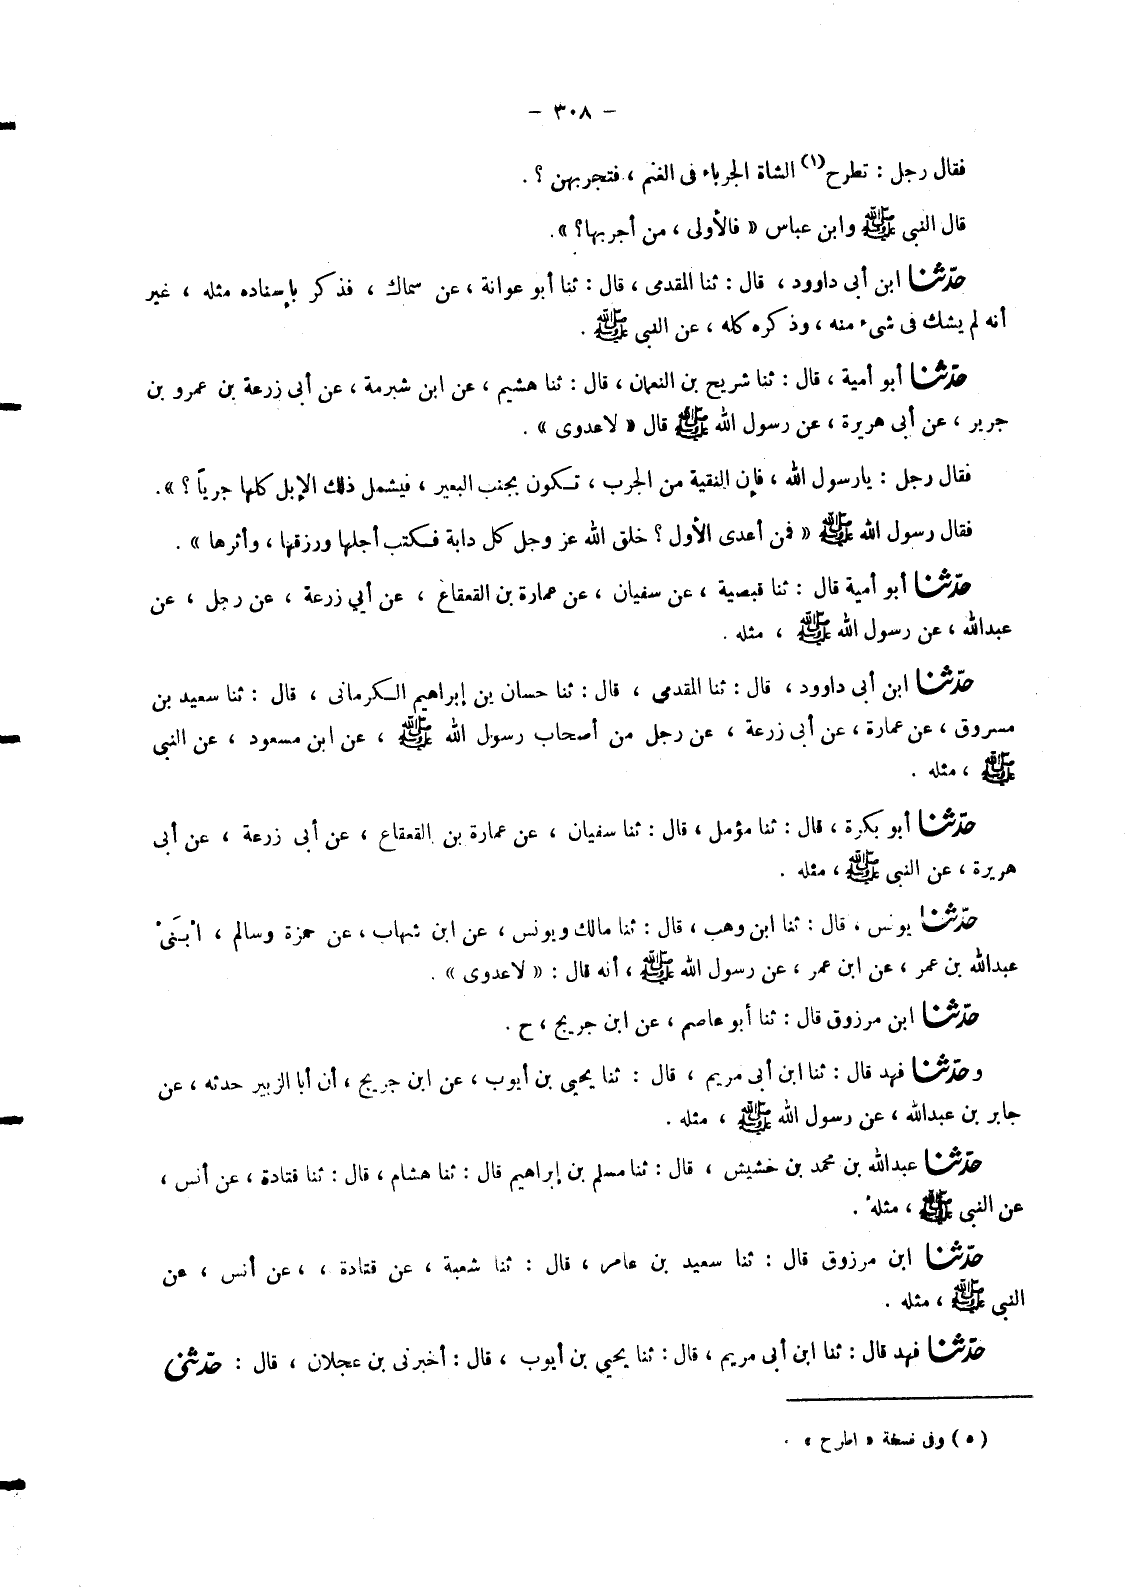 — ٣٠٨ —
فقال رجل : تطرح(١) الشاة الجرباء فى الغنم ، فتجربهن ؟ .
قال النبى ﷺ وابن عباس « فالأولى ، من أجربها؟ ».
حدّثنا ابن أبى داوود ، قال : ثنا المقدمى ، قال : ثنا أبو عوانة ، عن سماك ، فذكر بإسناده مثله ، غير
أنه لم يشك فى شىء منه ، وذكره كله ، عن النبى ﷺ .
حدّثنا أبو أمية ، قال : ثنا شريح بن النعمان ، قال : ثنا هشيم ، عن ابن شبرمة ، عن أبى زرعة بن عمرو بن
جرير ، عن أبى هريرة ، عن رسول الله ﷺ قال « لاعدوى » .
فقال رجل : يارسول الله ، فإن النقبة من الجرب ، تـكون بجنب البعير ، فيشمل ذلك الإبل كلها جرباً ؟ ».
فقال رسول الله ﷺ « فمن أعدى الأول ؟ خلق الله عز وجل كل دابة فـكتب أجلها ورزقها ، وأثرها » .
حدّثنا أبو أمية قال : ثنا قبصية ، عن سفيان ، عن عمارة بن القعقاع ، عن أبي زرعة ، عن رجل ، عن
عبدالله ، عن رسول الله ﷺ ، مثله .
حدّثنا ابن أبى داوود ، قال : ثنا المقدمي ، قال : ثنا حسان بن إبراهيم الـكرمانى ، قال : ثنا سعيد بن
مسروق ، عن عمارة ، عن أبى زرعة ، عن رجل من أصحاب رسول الله ﷺ ، عن ابن مسعود ، عن النبي
ﷺ ، مثله .
حدّثنا أبو بكرة ، قال : ثنا مؤمل ، قال : ثنا سفيان ، عن عمارة بن القعقاع ، عن أبى زرعة ، عن أبى
هريرة ، عن النبى ﷺ ، مثله .
حدّثنا يونس ، قال : ثنا ابن وهب ، قال : ثنا مالك ويونس ، عن ابن شهاب ، عن حمزة وسالم ، ابْـنَىْ
عبدالله بن عمر ، عن ابن عمر ، عن رسول الله ﷺ ، أنه قال : « لاعدوى » .
حدّثنا ابن مرزوق قال : ثنا أبو عاصم ، عن ابن جريج ، ح .
وحدّثنا فهد قال : ثنا ابن أبى مريم ، قال : ثنا يحيي بن أيوب ، عن ابن جريج ، أن أبا الزبير حدثه ، عن
جابر بن عبدالله ، عن رسول الله ﷺ ، مثله .
حدّثنا عبدالله بن محمد بن خشيش ، قال : ثنا مسلم بن إبراهيم قال : ثنا هشام ، قال : ثنا قتادة ، عن أنس ،
عن النبى ﷺ ، مثله .
حدّثنا ابن مرزوق قال : ثنا سعيد بن عامر ، قال : ثنا شعبة ، عن قتادة ، ، عن أنس ، عن
النبى ﷺ ، مثله .
حدّثنا فهد قال : ثنا ابن أبى مريم ، قال : ثنا يحيي بن أيوب ، قال : أخبرنى بن عجلان ، قال : حدّثنى
(٥) وفى نسخة « اطرح » .